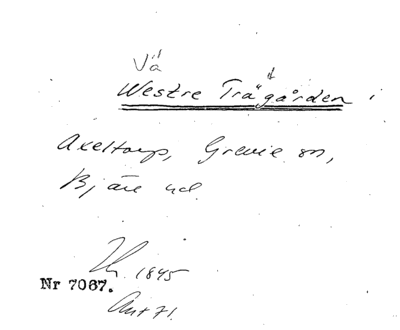 Vä
Westre Trägården
Axeltorp, Grevie sn,
Bjäre hd.
1845
Nr 7067.